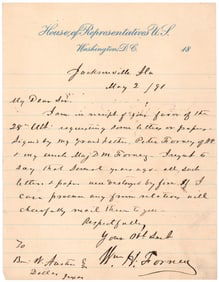 House of Representatives U.S.
Washington, D.C.
18
Jacksonville Ala
May 2 /91
My Dear Sir.
I am in receipt of your favor of the
28th Ult requesting some letters or papers
signed by my Grand father Peter Forney &
my uncle Maj D. M. Forney. I regret to
say that several years ago all such
letters & papers were destroyed by fire. If I
can procure any from relatives will
cheerfully mail them to you.
Respectfully
Your Obt Servt
Wm H. Forney
To
Benj. W. Austin
Dallas
Texas